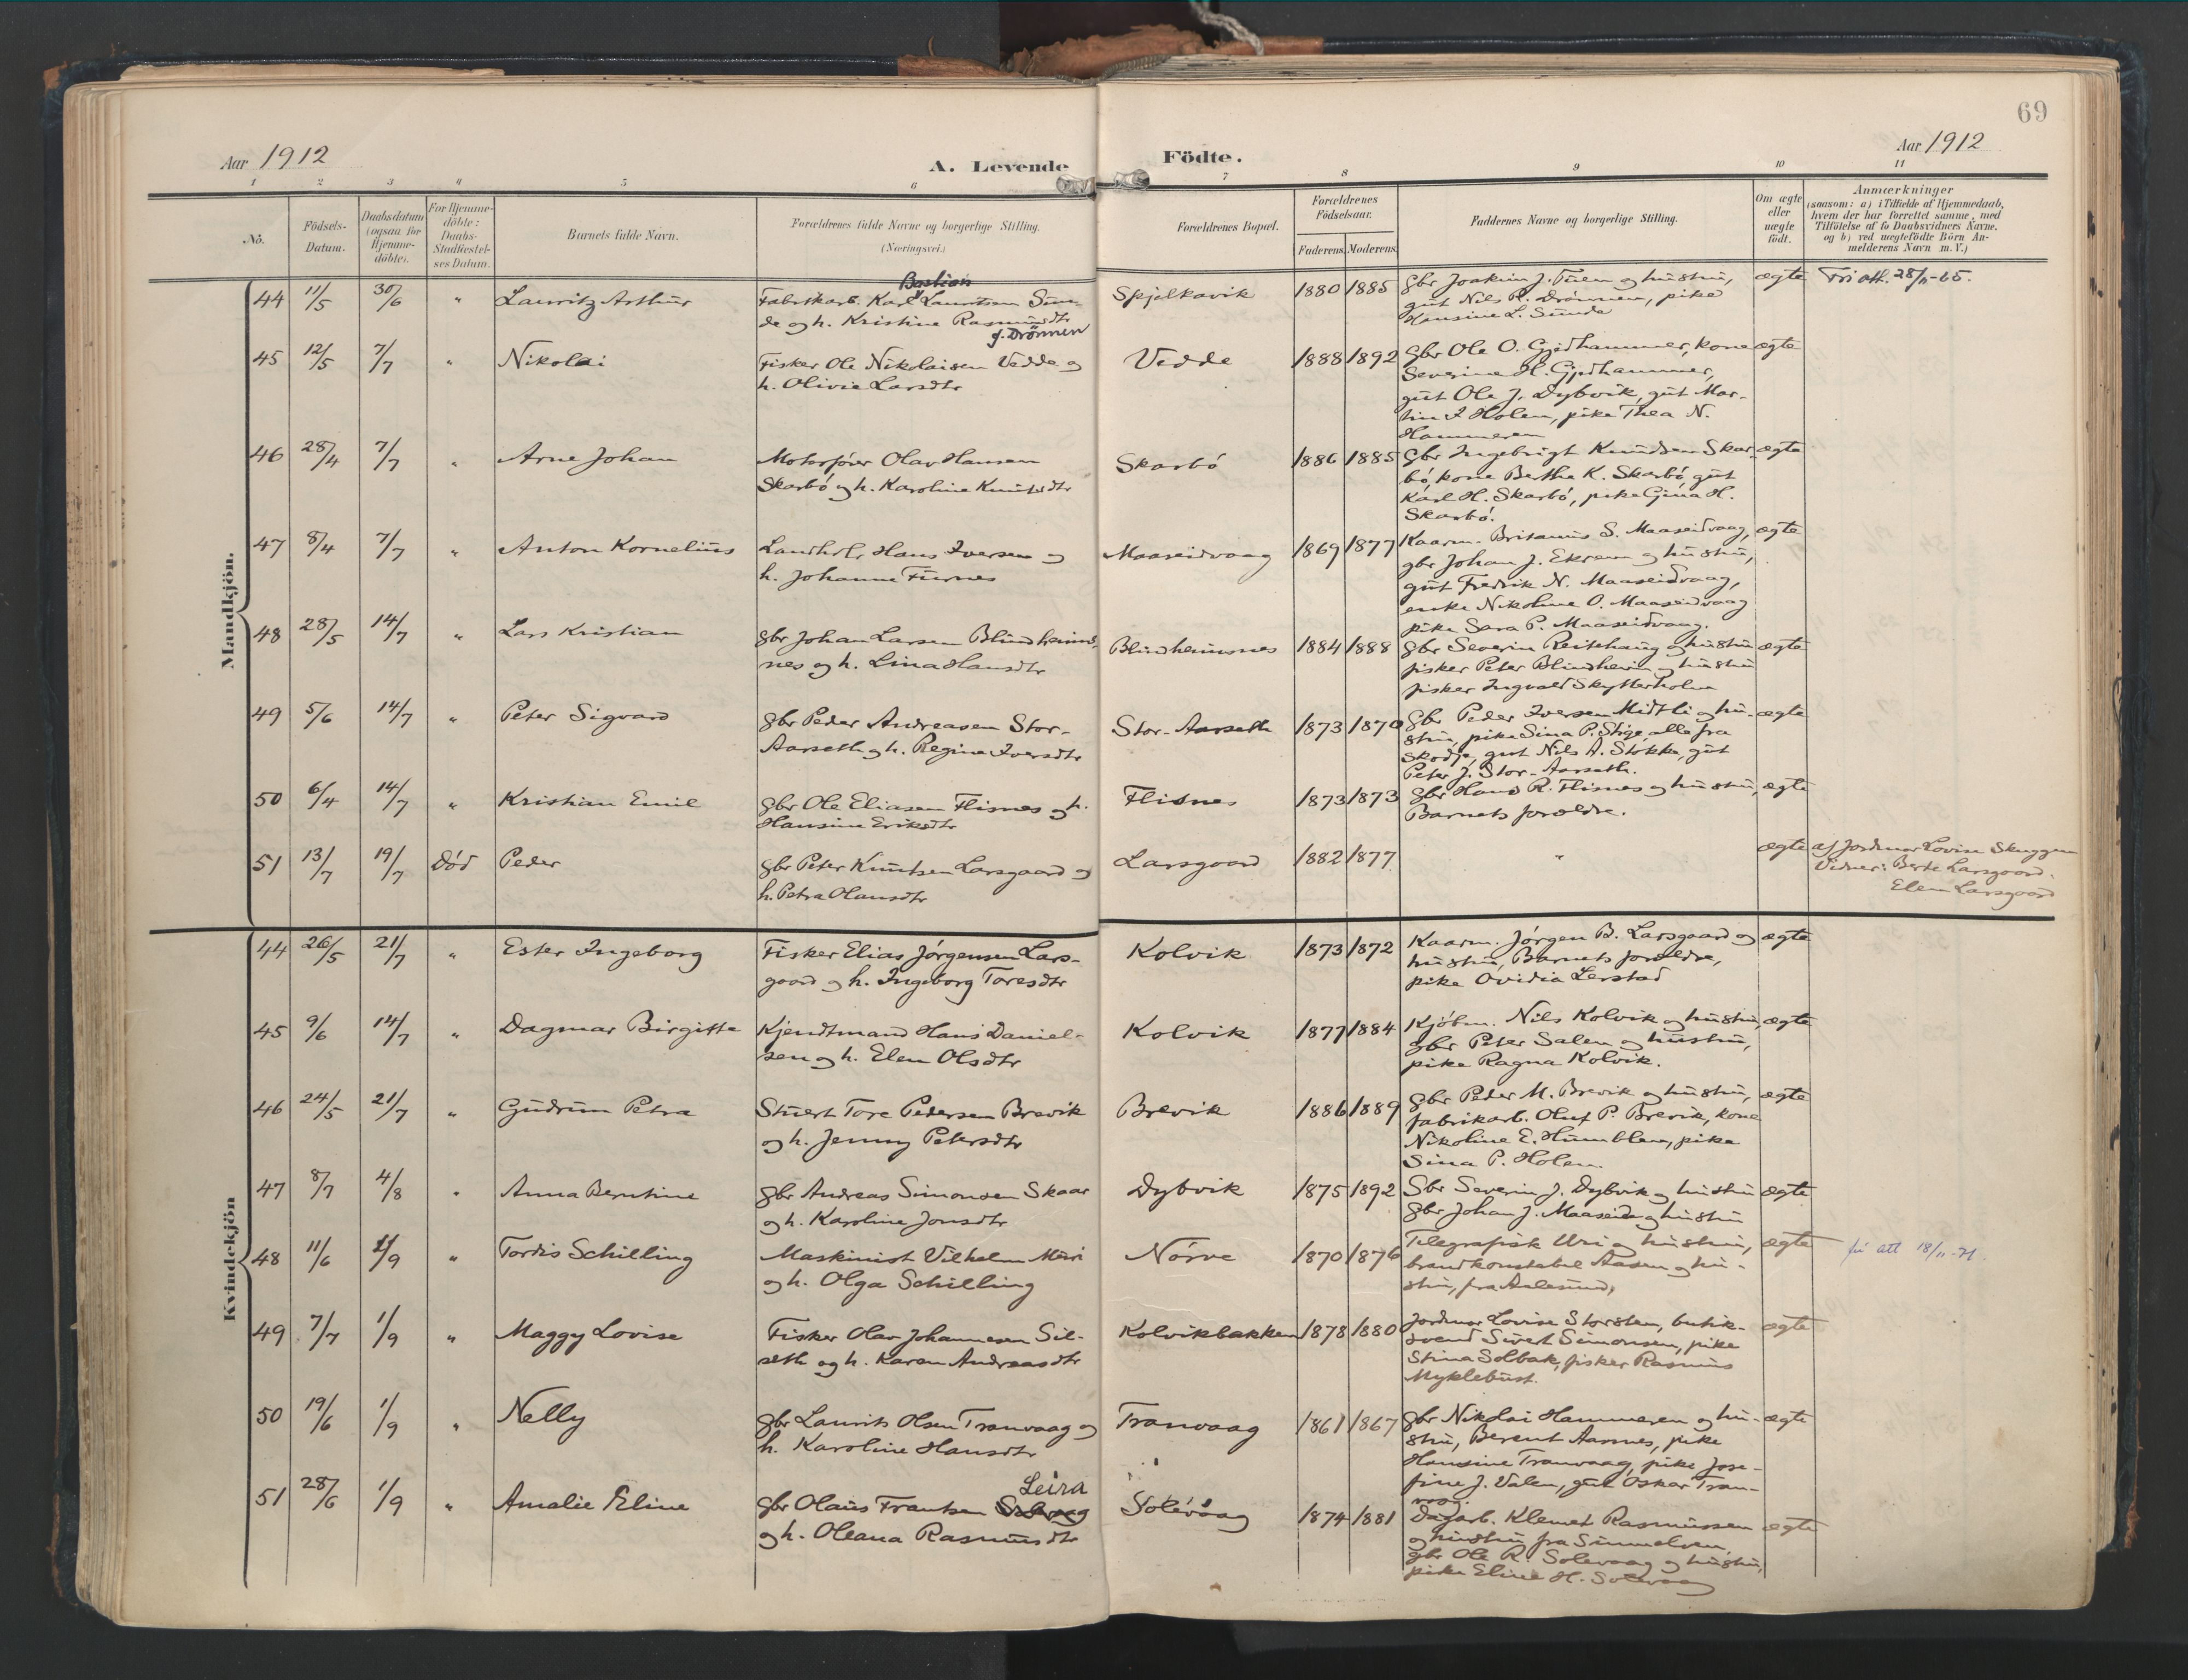 69
Aar 1912
A. Levende Födte.
Aar 1912
1 2 3 4 5 6 7 8 9 10 11
No.
Födsels-
Datum.
Daabsdatum
(ogsaa for
Hjemme-
döbte).
For Hjemme-
döbte:
Daabs-
Stadfæstel-
ses Datum.
Barnets fulde Navn.
Forældrenes fulde Navne og borgerlige Stilling.
(Næringsvei.)
Forældrenes Bopæl.
Forældrenes
Födselsaar.
Faderens. Moderens.
Faddernes Navne og borgerlige Stilling.
Om ægte
eller
uægte
födt.
Anmærkninger
(saasom: a) i Tilfælde af Hjemmedaab,
hvem der har forrettet samme, med
Tilföielse af to Daabsvidners Navne,
og b) ved uægtefödte Börn An-
melderens Navn m. V.)
Mandkjön.
44 11/5 30/6 " Lauritz Arthur
Bastian
Fabrikarb. Karl Lauritsen Sun-
de og h. Kristine Rasmusdtr
f. Drönnen
Spjelkavik 1880 1885
gbr Joakim J. Tuen og hustru,
gut Nils R. Drönnen, pike
Hansine L. Sunde
ægte
Fri att. 28/11-65.
45 12/5 7/7 " Nikolai
Fisker Ole Nikolaisen Vedde og
h. Olivie Larsdtr
Vedde 1888 1892
gbr Ole O. Gjedhammer, kone
Severine H. Gjedhammer,
gut Ole J. Dybvik, gut Mar-
tin I Holen, pike Thea N.
Hammeren
ægte
46 28/4 7/7 " Arne Johan
Motorfører Olav Hansen
Skarbó og h. Karoline Knutsdtr
Skarbó 1886 1885
gbr Ingebrigt Knudsen Skar-
bó, kone Berthe K. Skarbó, gut
Karl H. Skarbó, pike Gina H.
Skarbó.
ægte
47 8/4 7/7 " Anton Kornelius
Landh. Hans Iversen og
h. Johanne Furnes
Maaseidvaag 1869 1877
Kaarm. Britanus S. Maaseidvaag,
gbr Johan J. Ekrem og hustru,
gut Fredrik N. Maaseidvaag,
enke Nikoline O. Maaseidvaag
pike Sara P. Maaseidvaag.
ægte
48 28/5 14/7 " Lars Kristian
gbr Johan Larsen Blindheims-
nes og h. Lina Hansdtr
Blindheimsnes 1884 1888
gbr Severin Reitehaug og hustru
fisker Peter Blindheim og hustru
fisker Ingvald Skytterholm
ægte
49 5/6 14/7 " Peter Sigvard
gbr Peder Andreasen Stor-
Aarseth og h. Regine Iversdtr
Stor-Aarseth 1873 1870
gbr Peder Iversen Midtli og hu-
stru, pike Sina P. Stige, alle fra
Skodje, gut Nils A. Stokke, gut
Peter J. Stor-Aarseth.
ægte
50 6/4 14/7 " Kristian Emil
gbr Ole Eliasen Flisnes og h.
Hansine Eriksdtr
Flisnes 1873 1873
gbr Hans R. Flisnes og hustru,
Barnets forældre.
ægte
51 13/7 19/7 Död Peder
gbr Peter Knutsen Larsgaard og
h. Petra Olausdtr
Larsgaard 1882 1877 "
ægte
af Jordmor Lovise Skuggen
Vidner: Berte Larsgaard.
Elen Larsgaard
Kvindekjön
44 26/5 21/7 " Ester Ingeborg
Fisker Elias Jørgensen Lars-
gaard og h. Ingeborg Toresdtr
Kolvik 1873 1872
Kaarm. Jørgen B. Larsgaard og
hustru, Barnets forældre,
pike Ovidia Lerstad
ægte
45 9/6 14/7 " Dagmar Birgitte
Kjendtmand Hans Daniel-
sen og h. Elen Olsdtr
Kolvik 1877 1884
Kjöbm. Nils Kolvik og hustru,
gbr Peter Salen og hustru,
pike Ragna Kolvik.
ægte
46 24/5 21/7 " Gudrun Petra
Stuert Tore Pedersen Brevik
og h. Jenny Petersdtr
Brevik 1886 1889
gbr Peder M. Brevik og hustru,
fabrikarb. Oluf P. Brevik, kone
Nikoline E. Humblen, pike
Sina P. Holen.
ægte
47 8/7 4/8 " Anna Berntine
gbr Andreas Simonsen Skaar
og h. Karoline Jonsdtr
Dybvik 1875 1892
Gbr Severin J. Dybvik og hustru
gbr Johan J. Maaseide og hustru
ægte
48 11/6 1/9 " Tordis Schilling
Maskinist Vilhelm
og h. Olga Schilling
Nörve 1870 1876
Telegrafist Uri og hustru,
brandkonstabel Aasen og hu-
stru, fra Aalesund,
ægte
fri att 18/11-71.
49 7/7 1/9 " Maggy Lovise
Fisker Olav Johannesen Sil-
seth og h. Karen Andreasdtr
Kolvikbakken 1878 1880
Jordmor Lovise Storsten, butik-
svend Sivert Simonsen, pike
Stina Solbak, fisker Rasmus
Myklebust.
ægte
50 19/6 1/9 " Nelly
gbr Laurits Olsen Tranvaag og
h. Karoline Hansdtr
Tranvaag 1861 1867
gbr Nikolai Hammeren og hu-
stru, Berent Aarnes, pike
Hansine Tranvaag, pike Jose-
fine J. Valen, gut Oskar Tran-
vaag.
ægte
51 28/6 1/9 " Amalie Eline
Leira
gbr Olaus Frantsen Solevaag
og h. Oleana Rasmusdtr
Solevaag 1874 1881
Dagarb. Klemet Rasmussen
og hustru fra Simmelven,
gbr Ole R. Solevaag og hustru,
pike Eline H. Solevaag
ægte